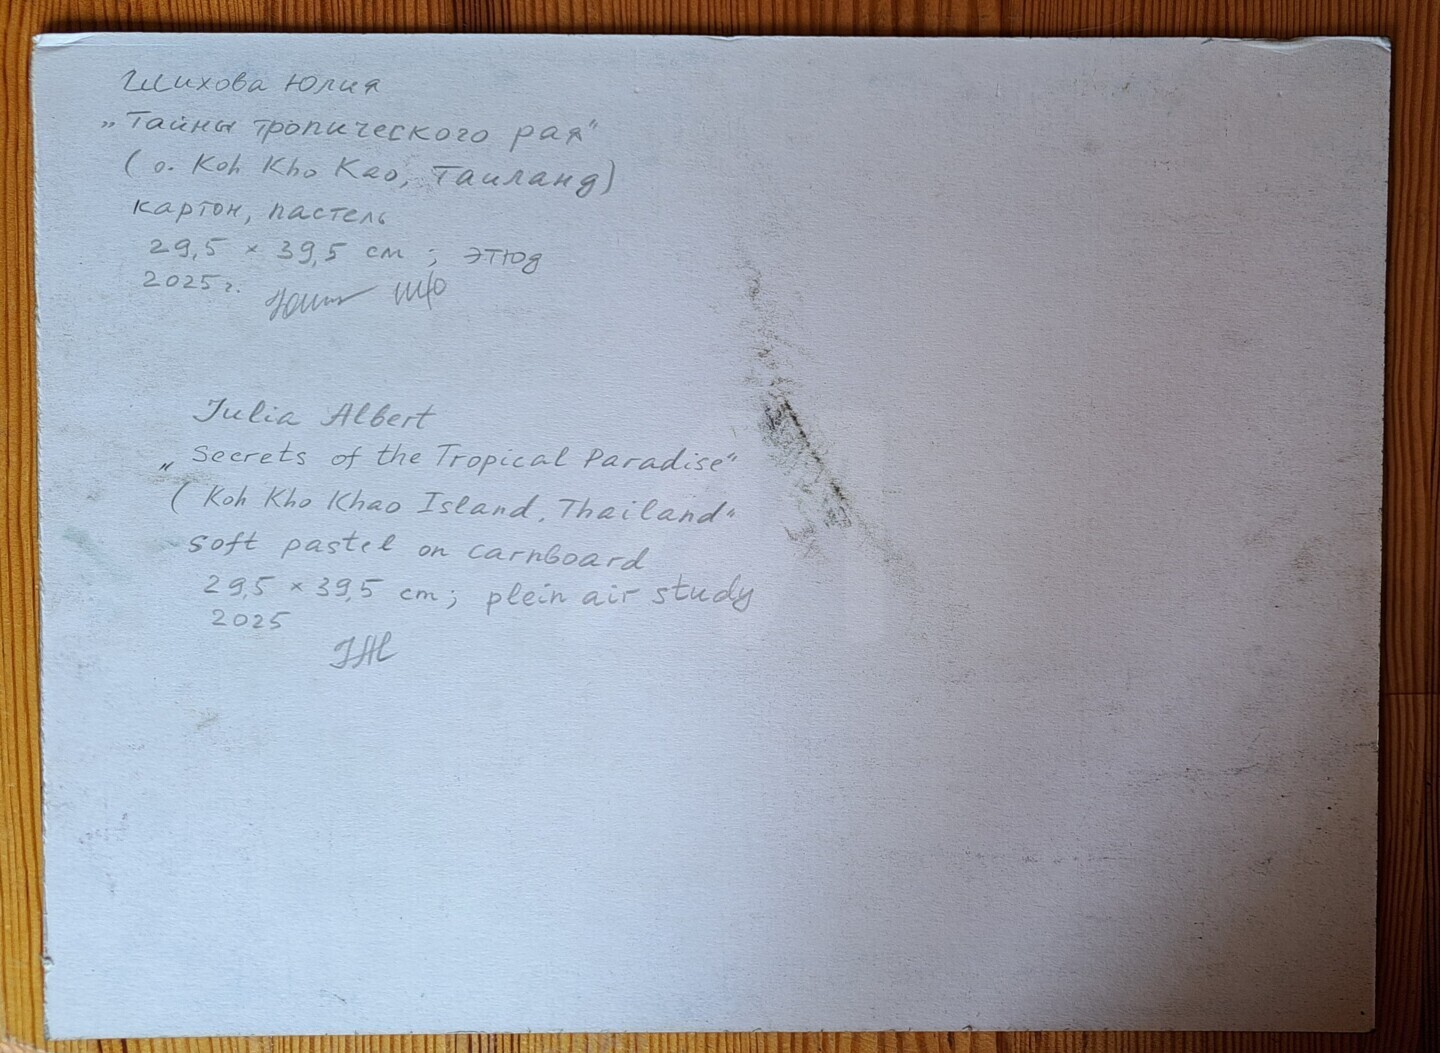 Шихова Юлия
„Тайны тропического рая"
( о. Koh Kho Kao, Таиланд)
картон, пастель
29,5 × 39,5 см ; этюд
2025г.
Julia Albert
„Secrets of the Tropical Paradise"
( Koh Kho Khao Island, Thailand"
soft pastel on carnboard
29,5 × 39,5 cm; plein air study
2025